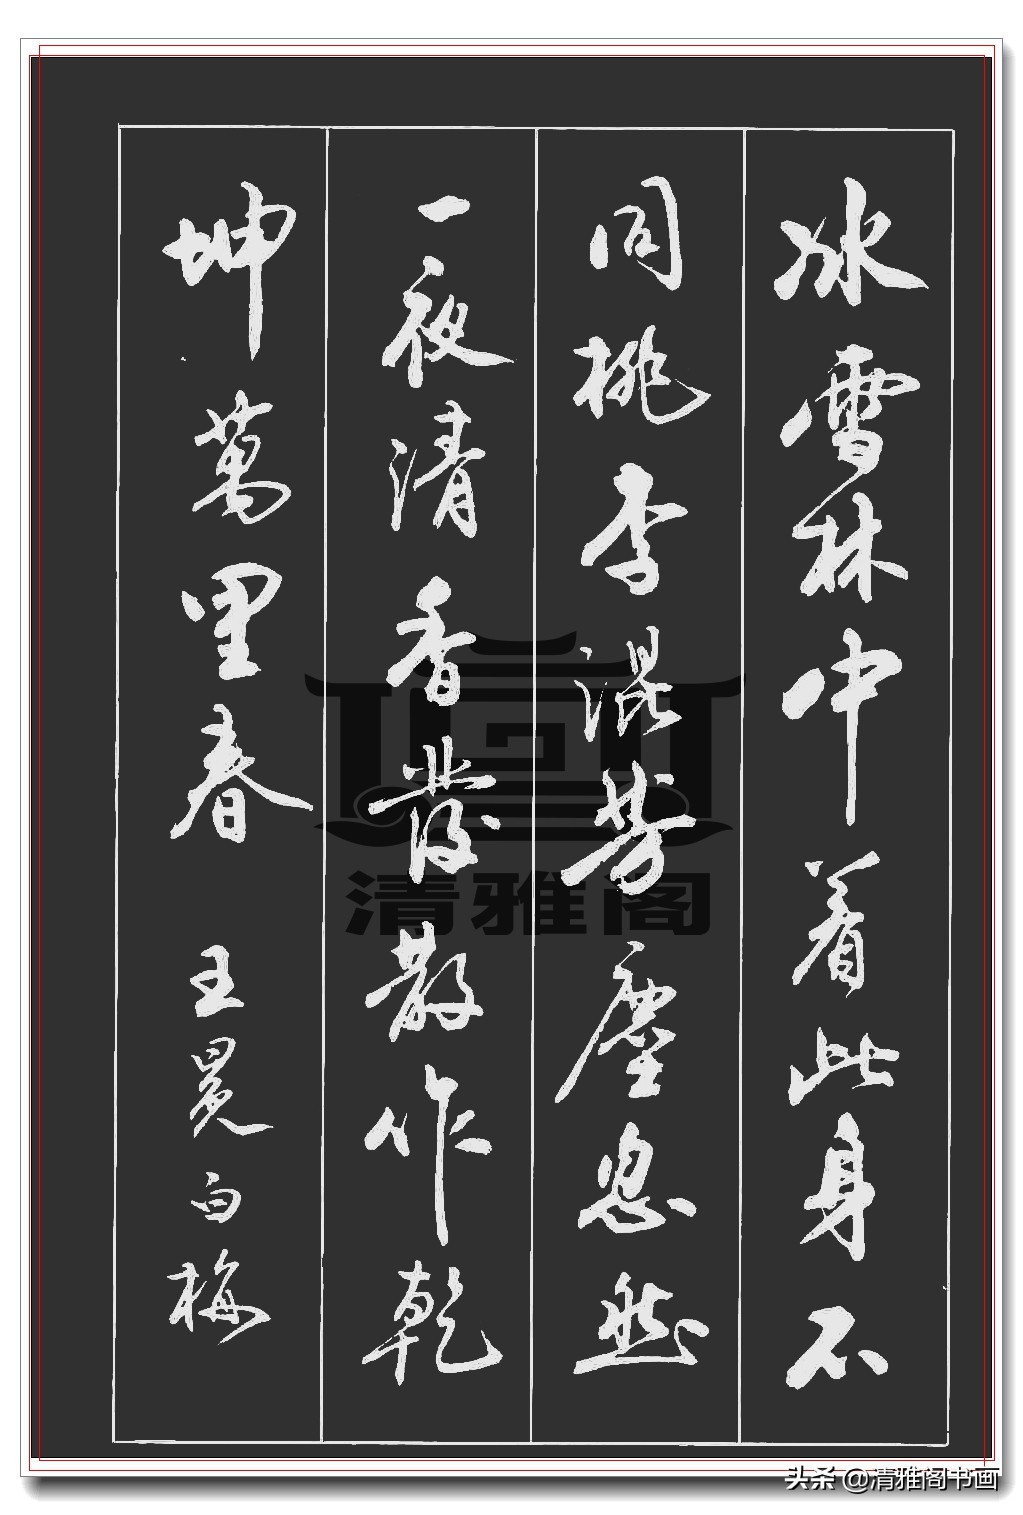 冰雪林中着此身不
同桃李混芳塵忽然
一夜清香發散作乾
坤萬里春 王冕白梅
清雅阁
头条 @清雅阁书画